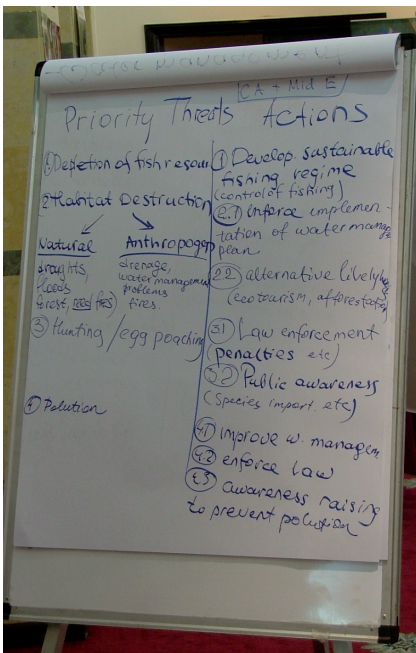 management
CA + Mid E
Priority Threats
① Depletion of fish resour
② Habitat Destruction
Natural
droughts,
floods
forest, reed fires
Anthropogen
drenage,
water management
problems
fires.
③ Hunting / egg poaching
④ Polution
Actions
① Develop. sustainable
fishing regime
(control of fishing)
2.1 inforce implemen-
tation of water manag
plan
2.2 alternative livelyho
(ecotourism, afforestation
3.1 Law enforcement
(penalties etc)
3.2 Public awareness
(Species import. etc)
4.1 improve w. managem
4.2 enforce law
4.3 awareness raising
to prevent polution